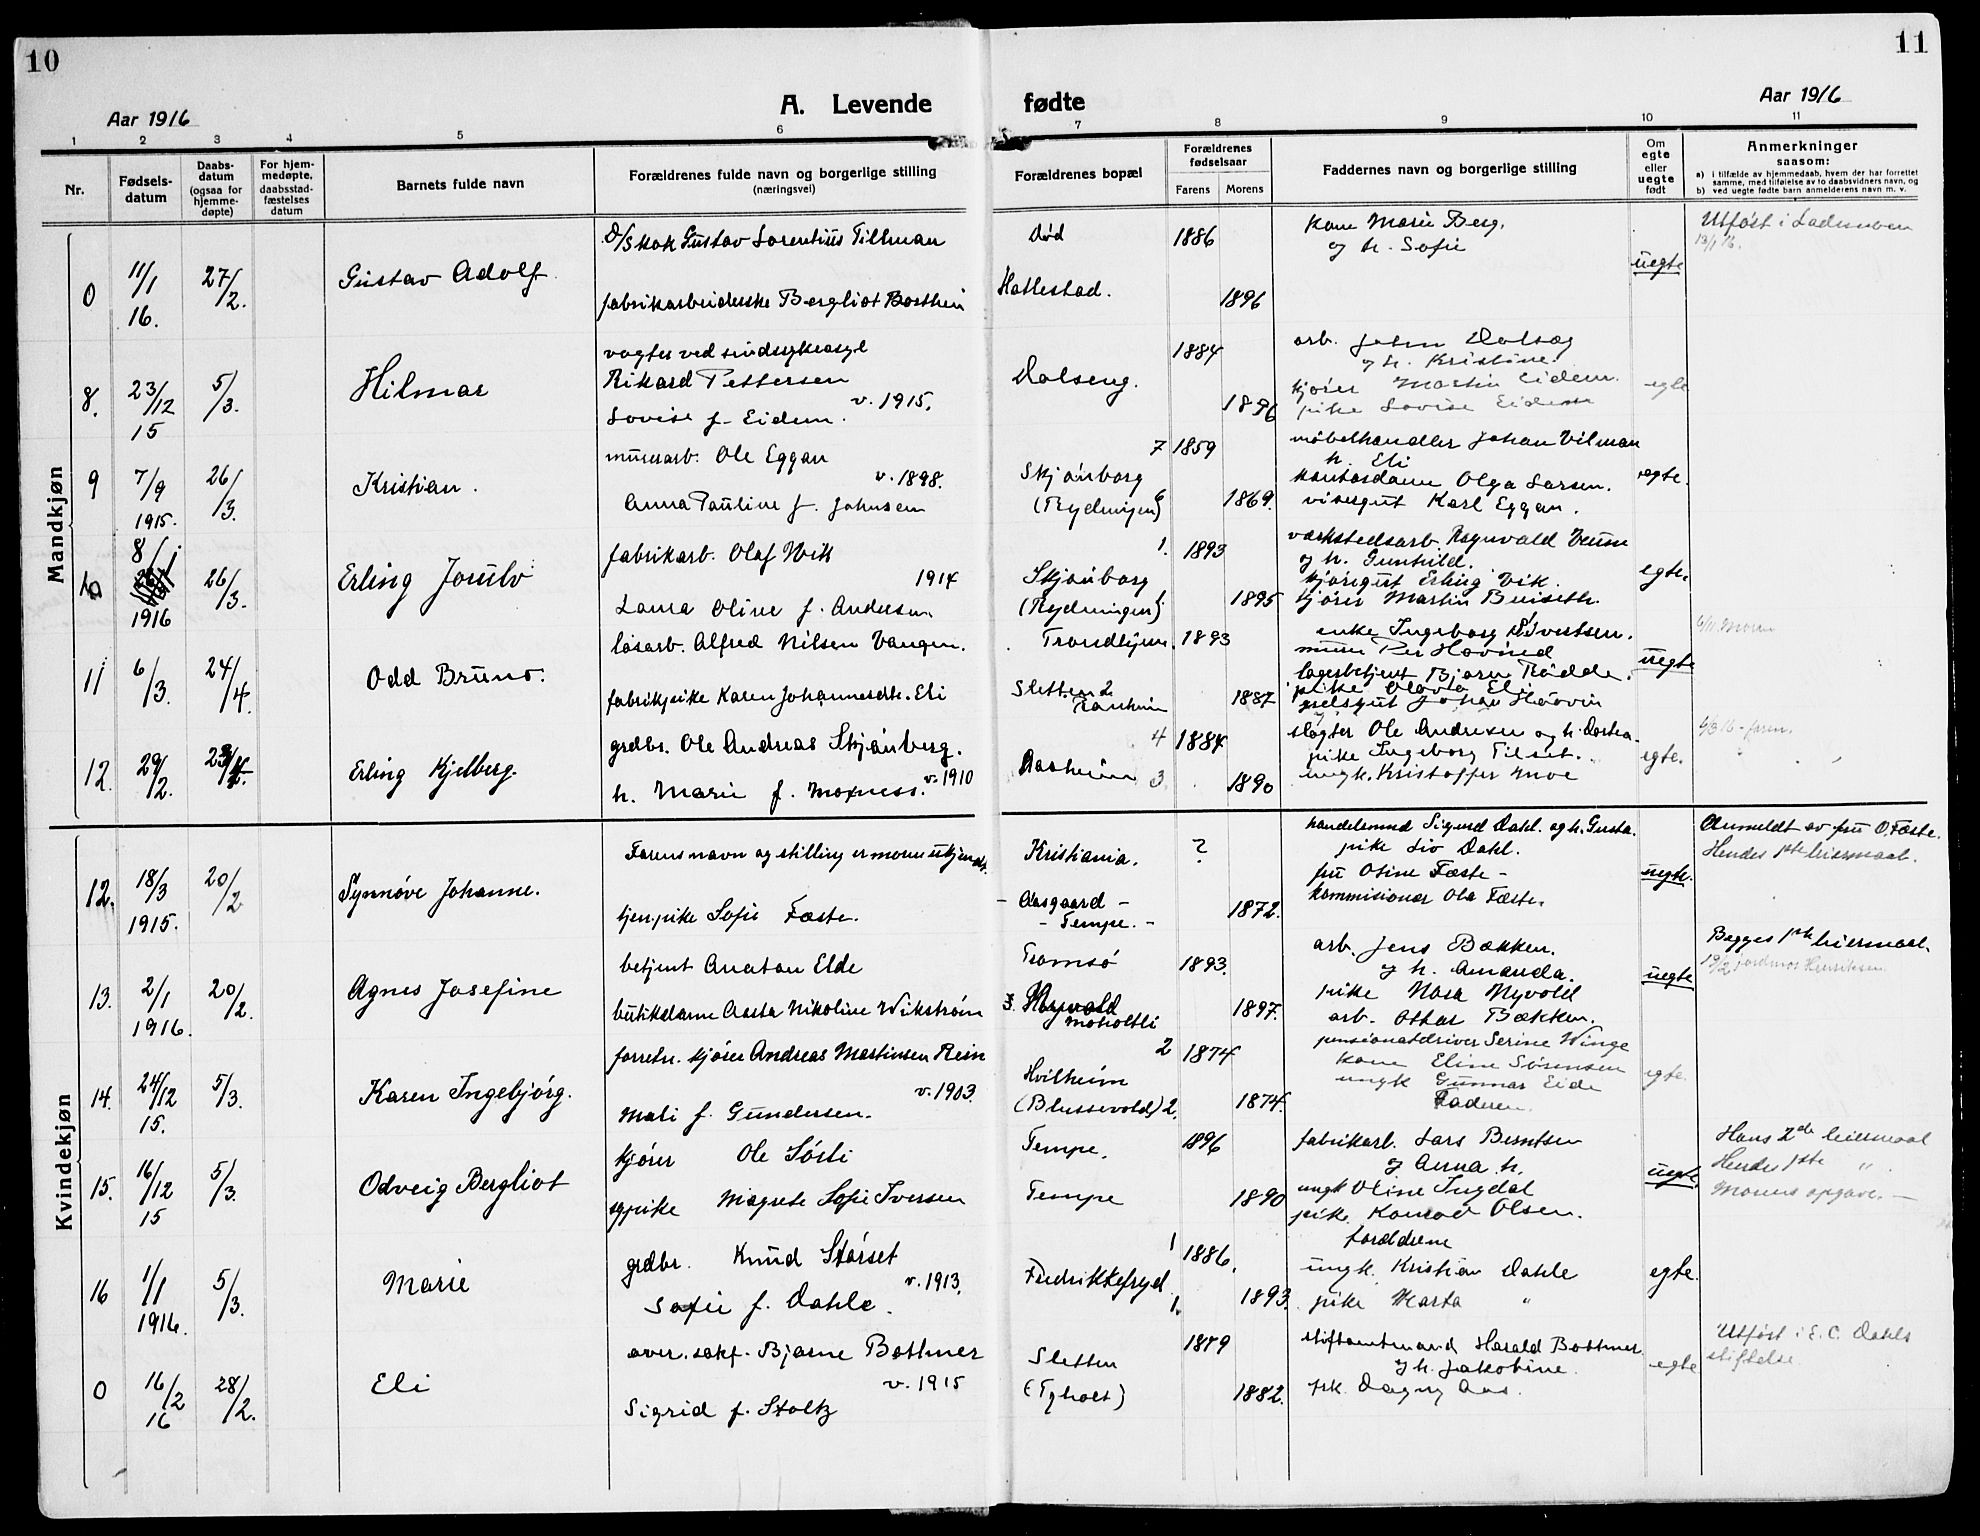 10
11
Aar 1916
A. Levende fødte
Aar 1916
1 2 3 4 5 6 7 8 9 10 11
Nr.
Fødsels-
datum
Daabs-
datum
(ogsaa for
hjemme-
døpte)
For hjem-
medøpte,
daabsstad-
fæstelses
datum
Barnets fulde navn
Forældrenes fulde navn og borgerlige stilling
(næringsvei)
Forældrenes bopæl
Forældrenes
fødselsaar
Farens Morens
Faddernes navn og borgerlige stilling
Om
egte
eller
uegte
født
Anmerkninger
saasom:
a) i tilfælde av hjemmedaab, hvem der har forrettet
samme, med tilføielse av to daabsvidners navn, og
b) ved uegte fødte barn anmelderens navn m. v.
Mandkjøn
0 11/1 16. 27/2. Gustav Adolf
Gustav Lorentius Tillman
fabrikarbeiderske Bergliot
død 1886
Hallestad. 1896
kone Marie Berg.
og h. Sofie
uegte
Utføst i Lademoen
8. 23/12 15 5/3. Hilmar
vogter ved sindsykeasyl
Rikard Pettersen
v. 1915.
Lovise f. Eidem.
Dalseng. 1884
1896
arb. John
og h. Kristine.
kjører Martin Eidem.
pike Lovise Eidem
egte
9 7/9 1915. 26/3. Kristian.
murerarb. Ole Eggan
v. 1898.
Anna Pauline f. Johnsen
7 1859
Skjånborg
(Rydningen) 6 1869.
møbelhandler Johan Vilman
h. Eli
kontordame Olga Larsen.
visergut Karl Eggan.
egte.
10 8/1 1916 26/3. Erling Jorulv
fabrikarb. Olaf Wik
1914
Laura Oline f. Andersen.
1. 1893
Skjånborg
(Rydningen) 1895
værkstedsarb. Ragnvald
og h. Gunhild.
kjøregut Erling Vik.
kjører Martin
egte.
11 6/3. 24/4. Odd Bruno.
løsarb. Alfred Nilsen Vangen.
fabrikpike Karen Johannesdtr. Eli
Trondhjem. 1893
Sletten 2
Ranheim 1887
enke Ingeborg Sivertsen.
murer Per
lagerbetjent Bjarne Rødde.
pike Olava Eli
uegte
6/11. Moren
12. 29/2. 23/4. Erling Kjelberg.
grdbr. Ole Andreas Skjånberg.
v. 1910
h. Marie f. Moxness.
4 1884
Aasheim 3 1890
slagter Ole Andresen og h. Dortea.
pike Ingeborg Tilset.
ungk. Kristoffer Moe
egte.
faren.
Kvindekjøn
12. 18/3 1915. 20/2 Synnøve Johanne.
Farens navn og stilling er moren ukjendt.
tjen.pike Sofie Fæste.
Kristiania. ?
- Aasgaard -
- Tempe. - 1872.
handelsmand Sigurd Dahl. og h. Gusta.
pike Liv Dahl.
fru Otine Fæste -
kommisionær Ola Fæste.
uegte.
Anmeldt av fru O. Fæste.
Hendes 1ste leiermaal.
13. 2/1 1916. 20/2. Agnes Josefine
betjent Anaton Elde
butikdame Aasta Nikoline Wikstrøm
Tromsø 1893.
Moholtli 1897.
arb. Jens Bækken.
og h. Amanda.
pike Nora Myvold
arb. Ottar Bækken.
uegte
Begges 1ste leiermaal.
19/2 jordmor Henriksen
14. 24/12 15. 5/3. Karen Ingebjørg.
forretn. kjører Andreas Martinsen Rein
v. 1903.
Mali f. Gundersen.
2 1874
Hvilheim
(Blussevold) 2. 1874.
pensionatdriver Serine Winge
kone Eline Sørensen
ungk Gunnar Eide
Faderen.
egte.
15. 16/12 15 5/3. Odveig Bergliot
kjører Ole Sørli
sypike Magrete Sofie Iversen
Tempe. 1896
Tempe 1890
fabrikarb. Lars Berntsen
og Anna h.
ungk Oline Ingdal
pike. Konrad Olsen.
uegte.
Hans 2de leiermaal
Hendes 1ste "
Morens opgave. -
16 1/1 1916. 5/3. Marie
grdbr. Knud Størset
v. 1913.
Sofie f. Dahle.
1 1886.
Fredrikkefryd 1. 1893.
Forældrene
ungk. Kristian Dahle
pike Marta "
egte.
0 16/2 16 28/2. Eli
over.sakf. Bjarne Bothner
v. 1915
Sigrid f. Stoltz
Sletten 1879
(Tyholt) 1882.
stiftamtmand Harald Bothner
og h. Jakobine.
pk. Dagny Aas.
egte
Utføst i E. C. Dahls
stiftelse.